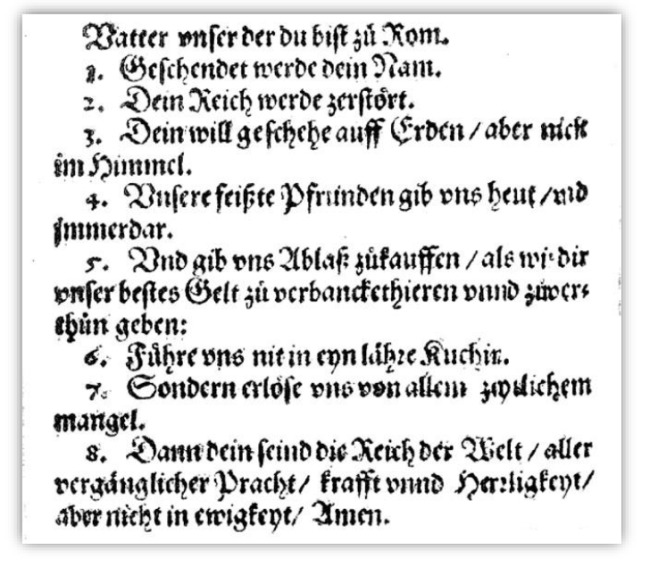 Vatter vnser der du bist zů Rom.
1. Geschendet werde dein Nam.
2. Dein Reich werde zerstört.
3. Dein will geschehe auff Erden / aber nicht
im Himmel.
4. Vnsere feißte Pfrunden gib vns heut / vnd
jmmerdar.
5. Vnd gib vns Ablaß zůkauffen / als wir dir
vnser bestes Gelt zů verbanckethieren vnnd zůver-
thůn geben:
6. Führe vns nit in eyn lähre Kuchin.
7. Sondern erlöse vns von allem zeytlichem
mangel.
8. Dann dein seind die Reich der Welt / aller
vergänglicher Pracht / krafft vnnd Herrligkeyt /
aber nicht in ewigkeyt / Amen.